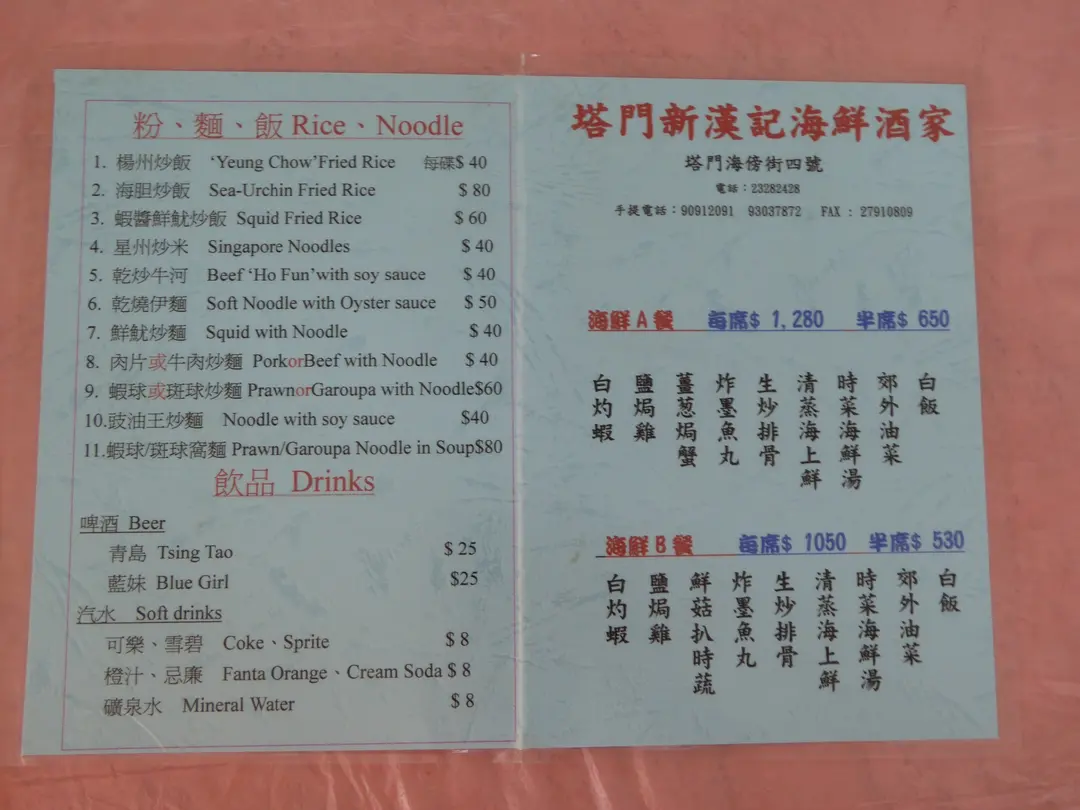 粉、麵、飯 Rice、Noodle
1. 楊州炒飯 ‘Yeung Chow’Fried Rice 每碟$ 40
2. 海胆炒飯 Sea-Urchin Fried Rice $ 80
3. 蝦醬鮮魷炒飯 Squid Fried Rice $ 60
4. 星州炒米 Singapore Noodles $ 40
5. 乾炒牛河 Beef ‘Ho Fun’with soy sauce $ 40
6. 乾燒伊麵 Soft Noodle with Oyster sauce $ 50
7. 鮮魷炒麵 Squid with Noodle $ 40
8. 肉片或牛肉炒麵 PorkorBeef with Noodle $ 40
9. 蝦球或斑球炒麵 PrawnorGaroupa with Noodle$60
10.豉油王炒麵 Noodle with soy sauce $40
11.蝦球/斑球窩麵 Prawn/Garoupa Noodle in Soup$80
飲品 Drinks
啤酒 Beer
青島 Tsing Tao $ 25
藍妹 Blue Girl $25
汽水 Soft drinks
可樂、雪碧 Coke、Sprite $ 8
橙汁、忌廉 Fanta Orange、Cream Soda $ 8
礦泉水 Mineral Water $ 8
塔門新漢記海鮮酒家
塔門海傍街四號
電話：23282428
手提電話：90912091 93037872 FAX : 27910809
海鮮A餐 每席$ 1,280 半席$ 650
白灼蝦
鹽焗雞
薑蔥焗蟹
炸墨魚丸
生炒排骨
清蒸海上鮮
時菜海鮮湯
郊外油菜
白飯
海鮮B餐 每席$ 1050 半席$ 530
白灼蝦
鹽焗雞
鮮菇扒時蔬
炸墨魚丸
生炒排骨
清蒸海上鮮
時菜海鮮湯
郊外油菜
白飯